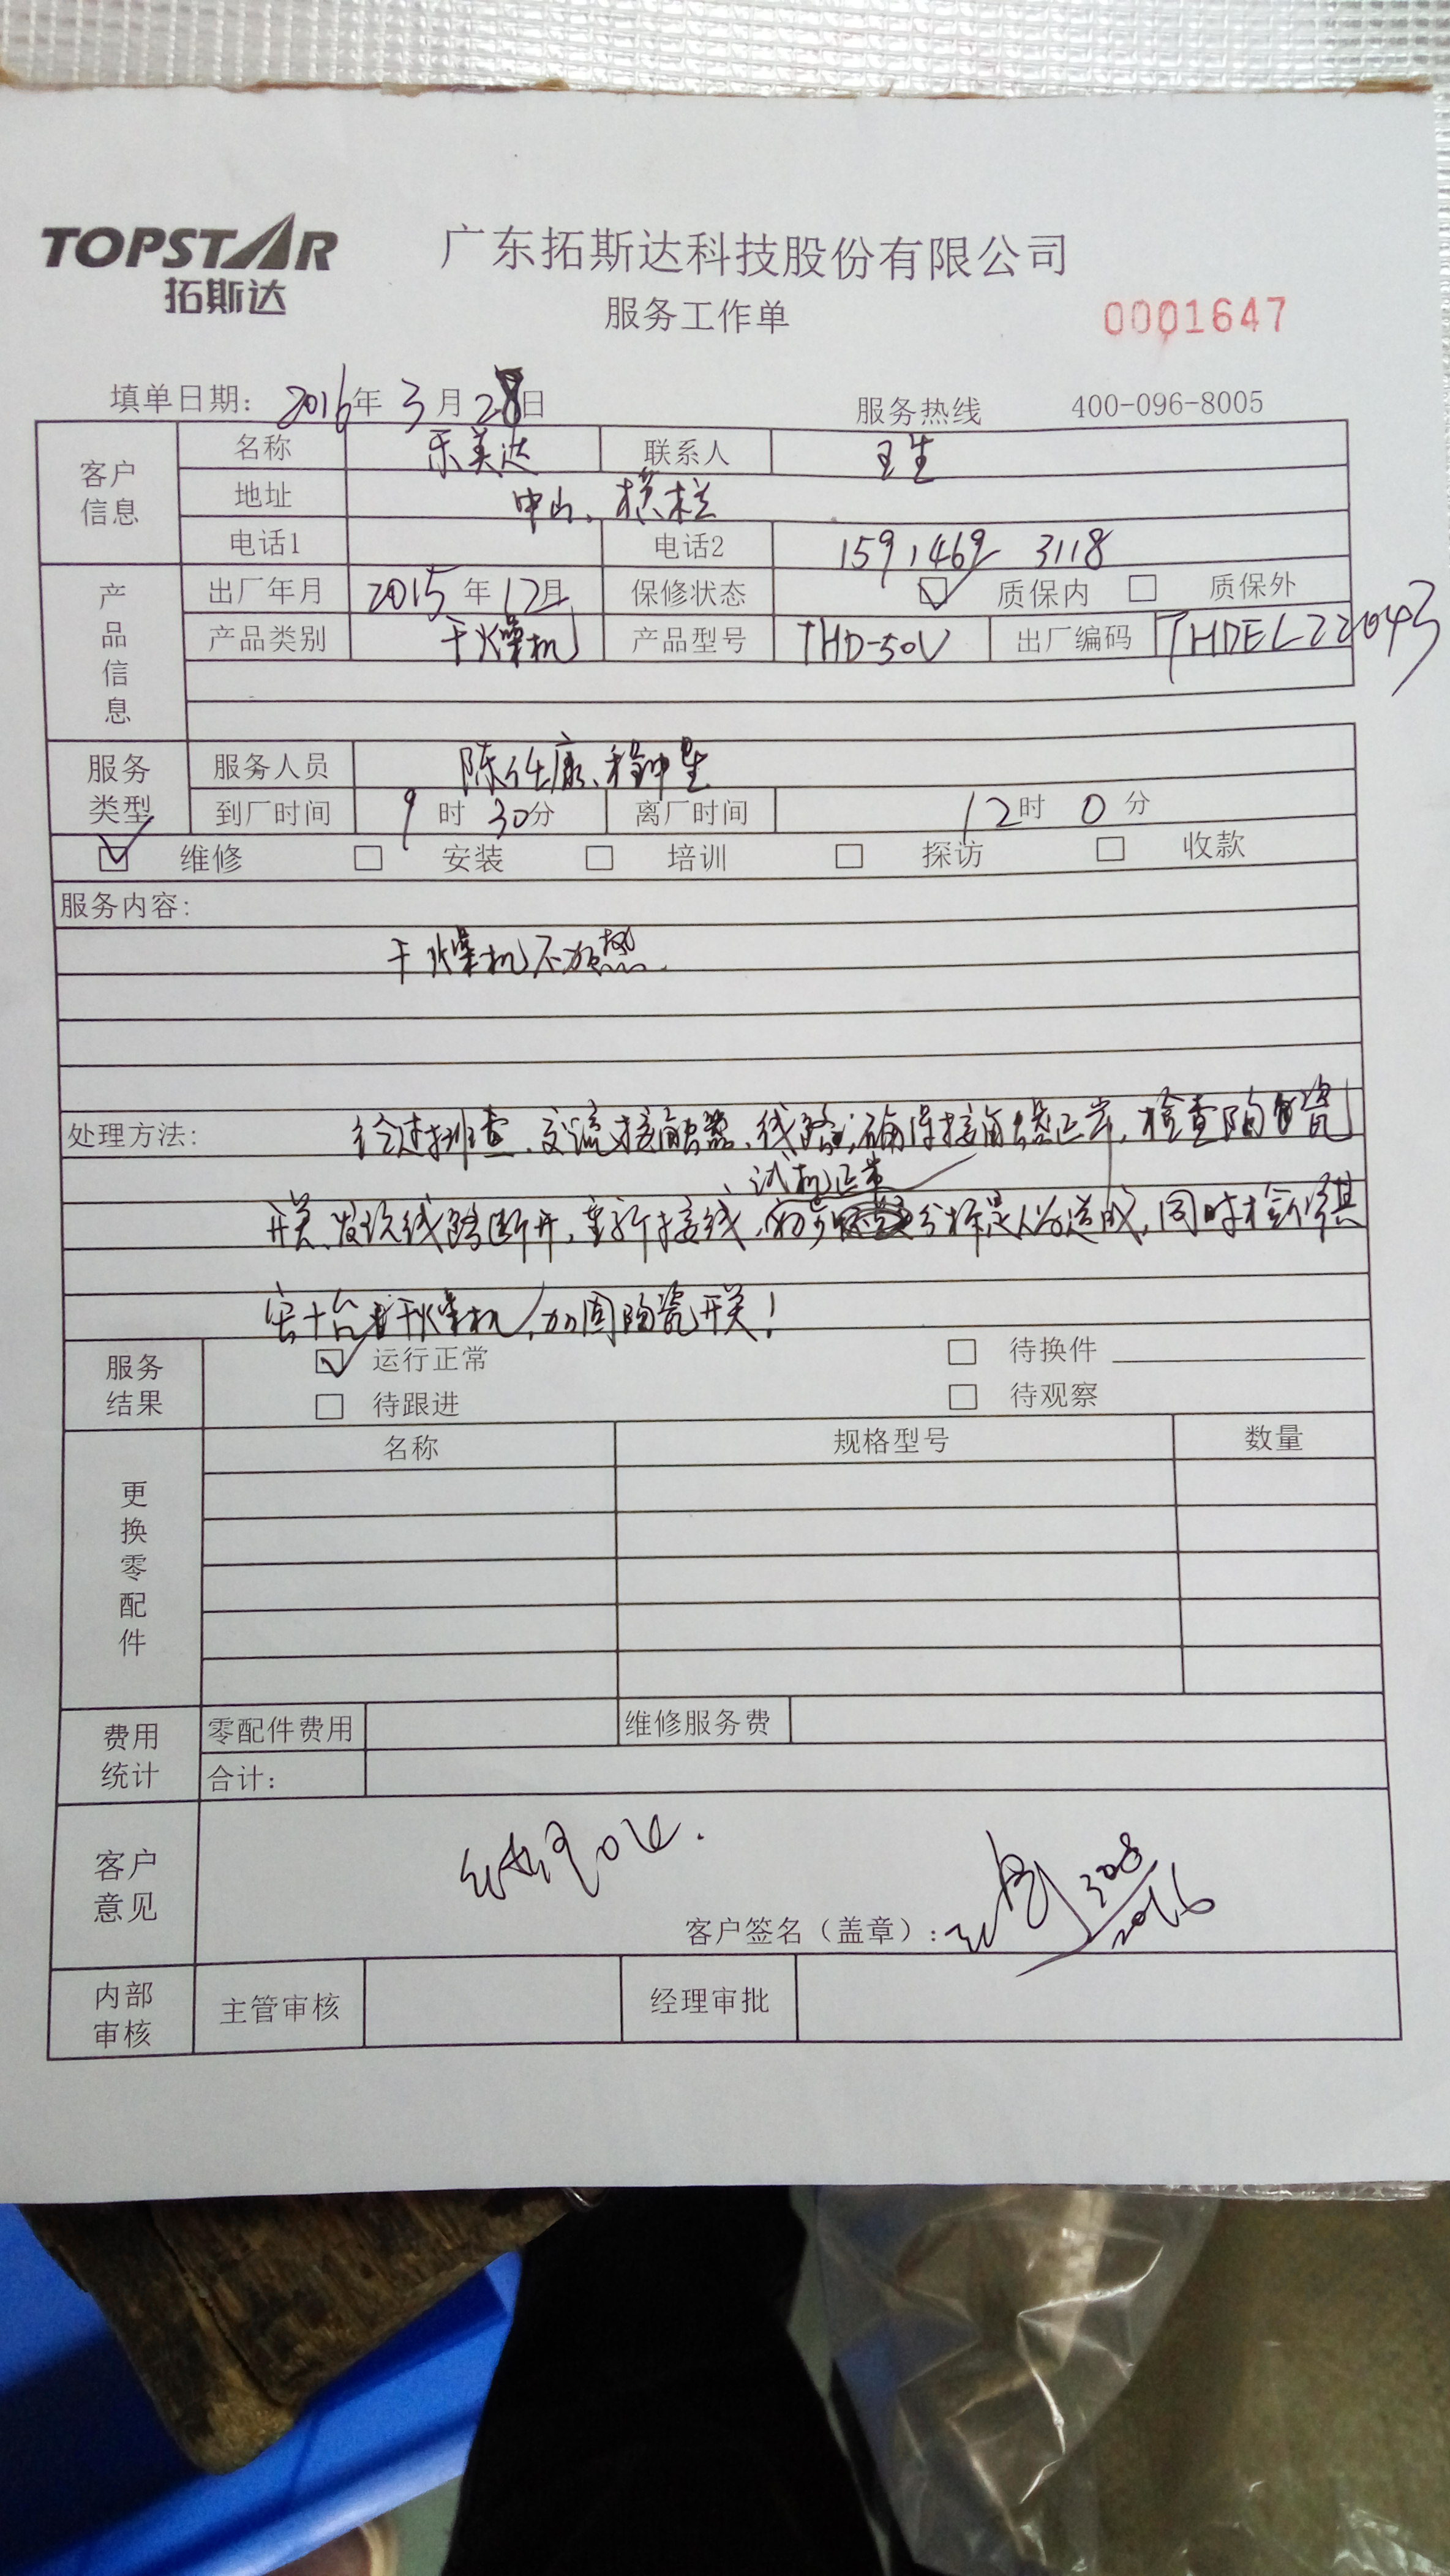 TOPSTAR
拓斯达
广东拓斯达科技股份有限公司
服务工作单
0001647
填单日期: 2016年 3月 28日
服务热线 400-096-8005
客户信息
名称 乐美达 联系人 王生
地址 中山、横栏
电话1 电话2 15914692 3118
产品信息
出厂年月 2015年12月 保修状态 ☑ 质保内 □ 质保外
产品类别 干燥机 产品型号 THD-50U 出厂编码 THDEL22043
服务类型
服务人员 陈仕康、程钟生
到厂时间 9时 30分 离厂时间 12时 0分
☑ 维修 □ 安装 □ 培训 □ 探访 □ 收款
服务内容:
干燥机不加热.
处理方法: 经过排查、交流接触器、线路;确保接触器正常,检查陶瓷
、试机正常
开关、发现线路断开,重新接线,初步分析是人为造成,同时检修其
它十台干燥机,加固陶瓷开关!
服务结果
☑ 运行正常 □ 待换件
□ 待跟进 □ 待观察
更换零配件
名称 规格型号 数量
费用统计
零配件费用 维修服务费
合计:
客户意见
客户签名(盖章): 328
2016
内部审核
主管审核 经理审批